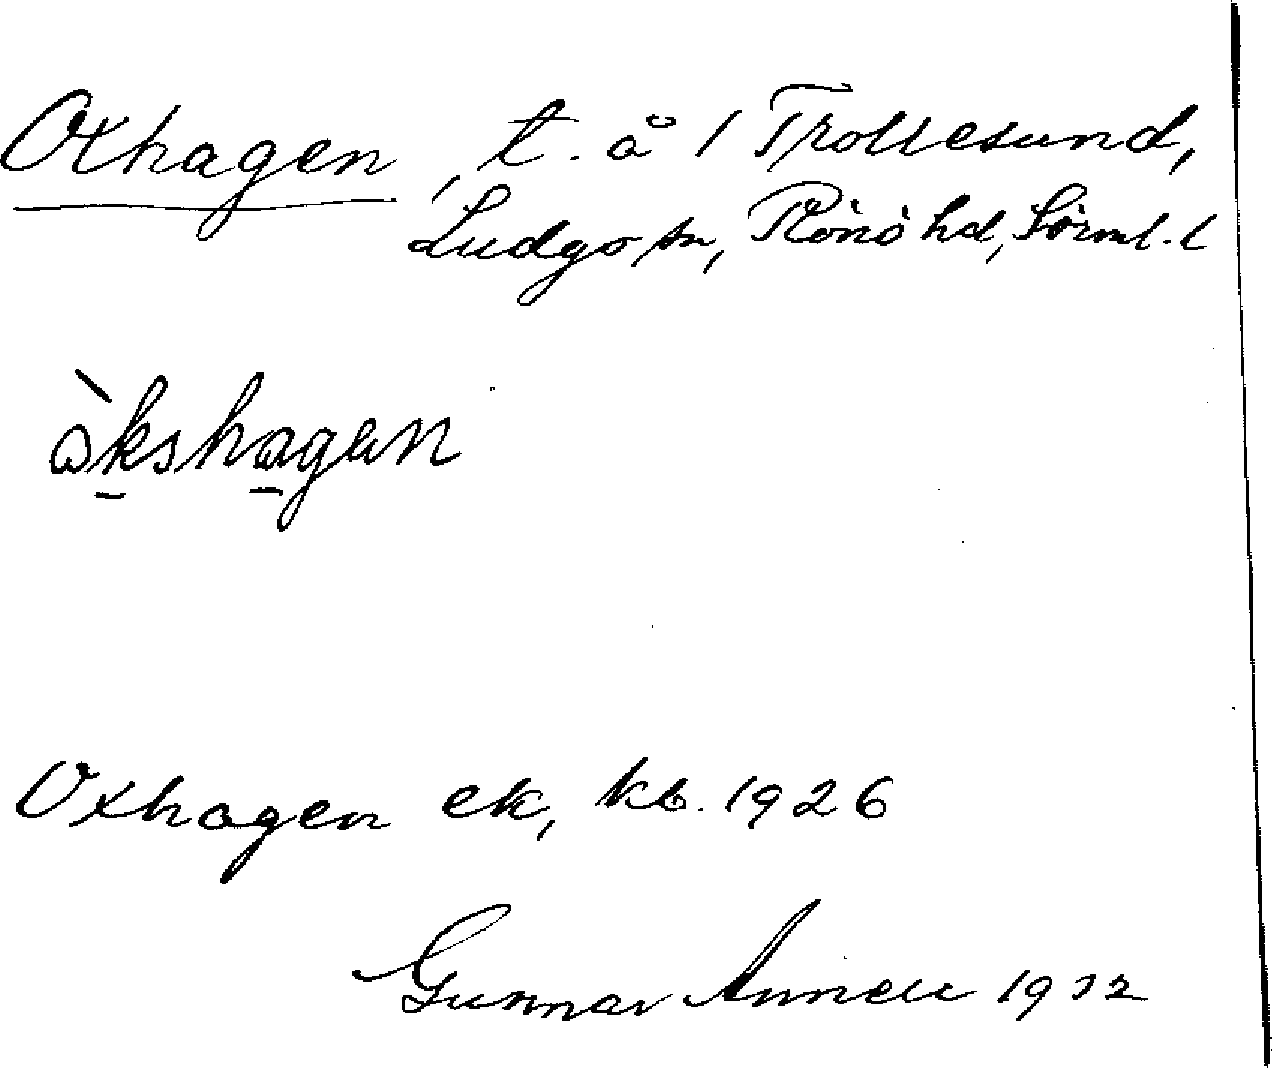 Oxhagen, t. å 1 Trollesund,
Ludgo sn, Rönö hd, Sörml. l
òkshagen
Oxhagen ek, kb. 1926
Gunnar Annell 1932